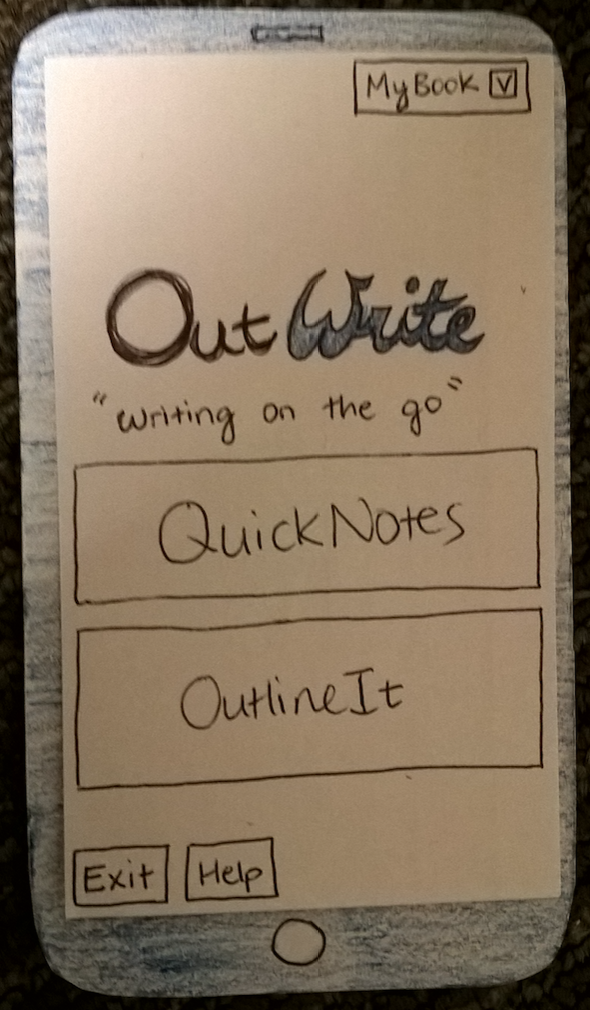 MyBook V
OutWrite
"writing on the go"
QuickNotes
OutlineIt
Exit Help